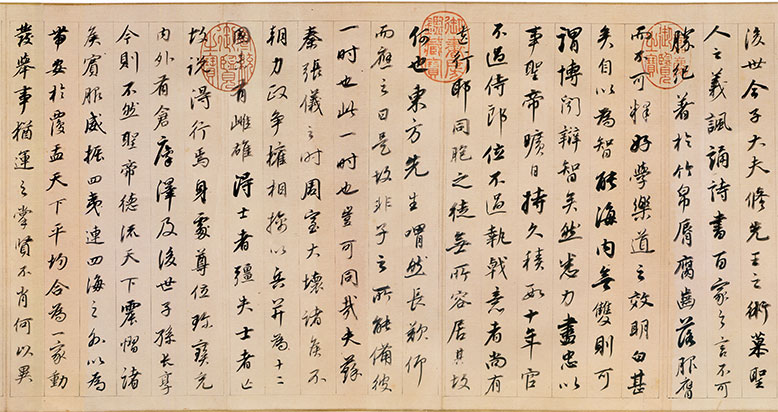 後世今子大夫修先王之術慕聖
人之義諷誦詩書百家之言不可
勝紀著於竹帛脣腐齒落服膺
而不可釋好學樂道之效明白甚
矣自以為智能海內無雙則可
謂博聞辯智矣然悉力盡忠以
事聖帝曠日持久積數十年官
不過侍郎位不過執戟意者尚有
遺行耶同胞之徒無所容居其故
何也東方先生喟然長歎仰
而應之曰是故非子之所能備彼
一時也此一時也豈可同哉夫蘇
秦張儀之時周室大壞諸侯不
朝力政爭權相擒以兵并為十二
國未有雌雄得士者彊失士者亡
故說得行焉身處尊位珍寶充
內外有倉廩澤及後世子孫長享
今則不然聖帝德流天下震慴諸
侯賓服威振四夷連四海之外以為
帶安於覆盂天下平均合為一家動
發舉事猶運之掌賢不肖何以異
御書房鑑藏寶